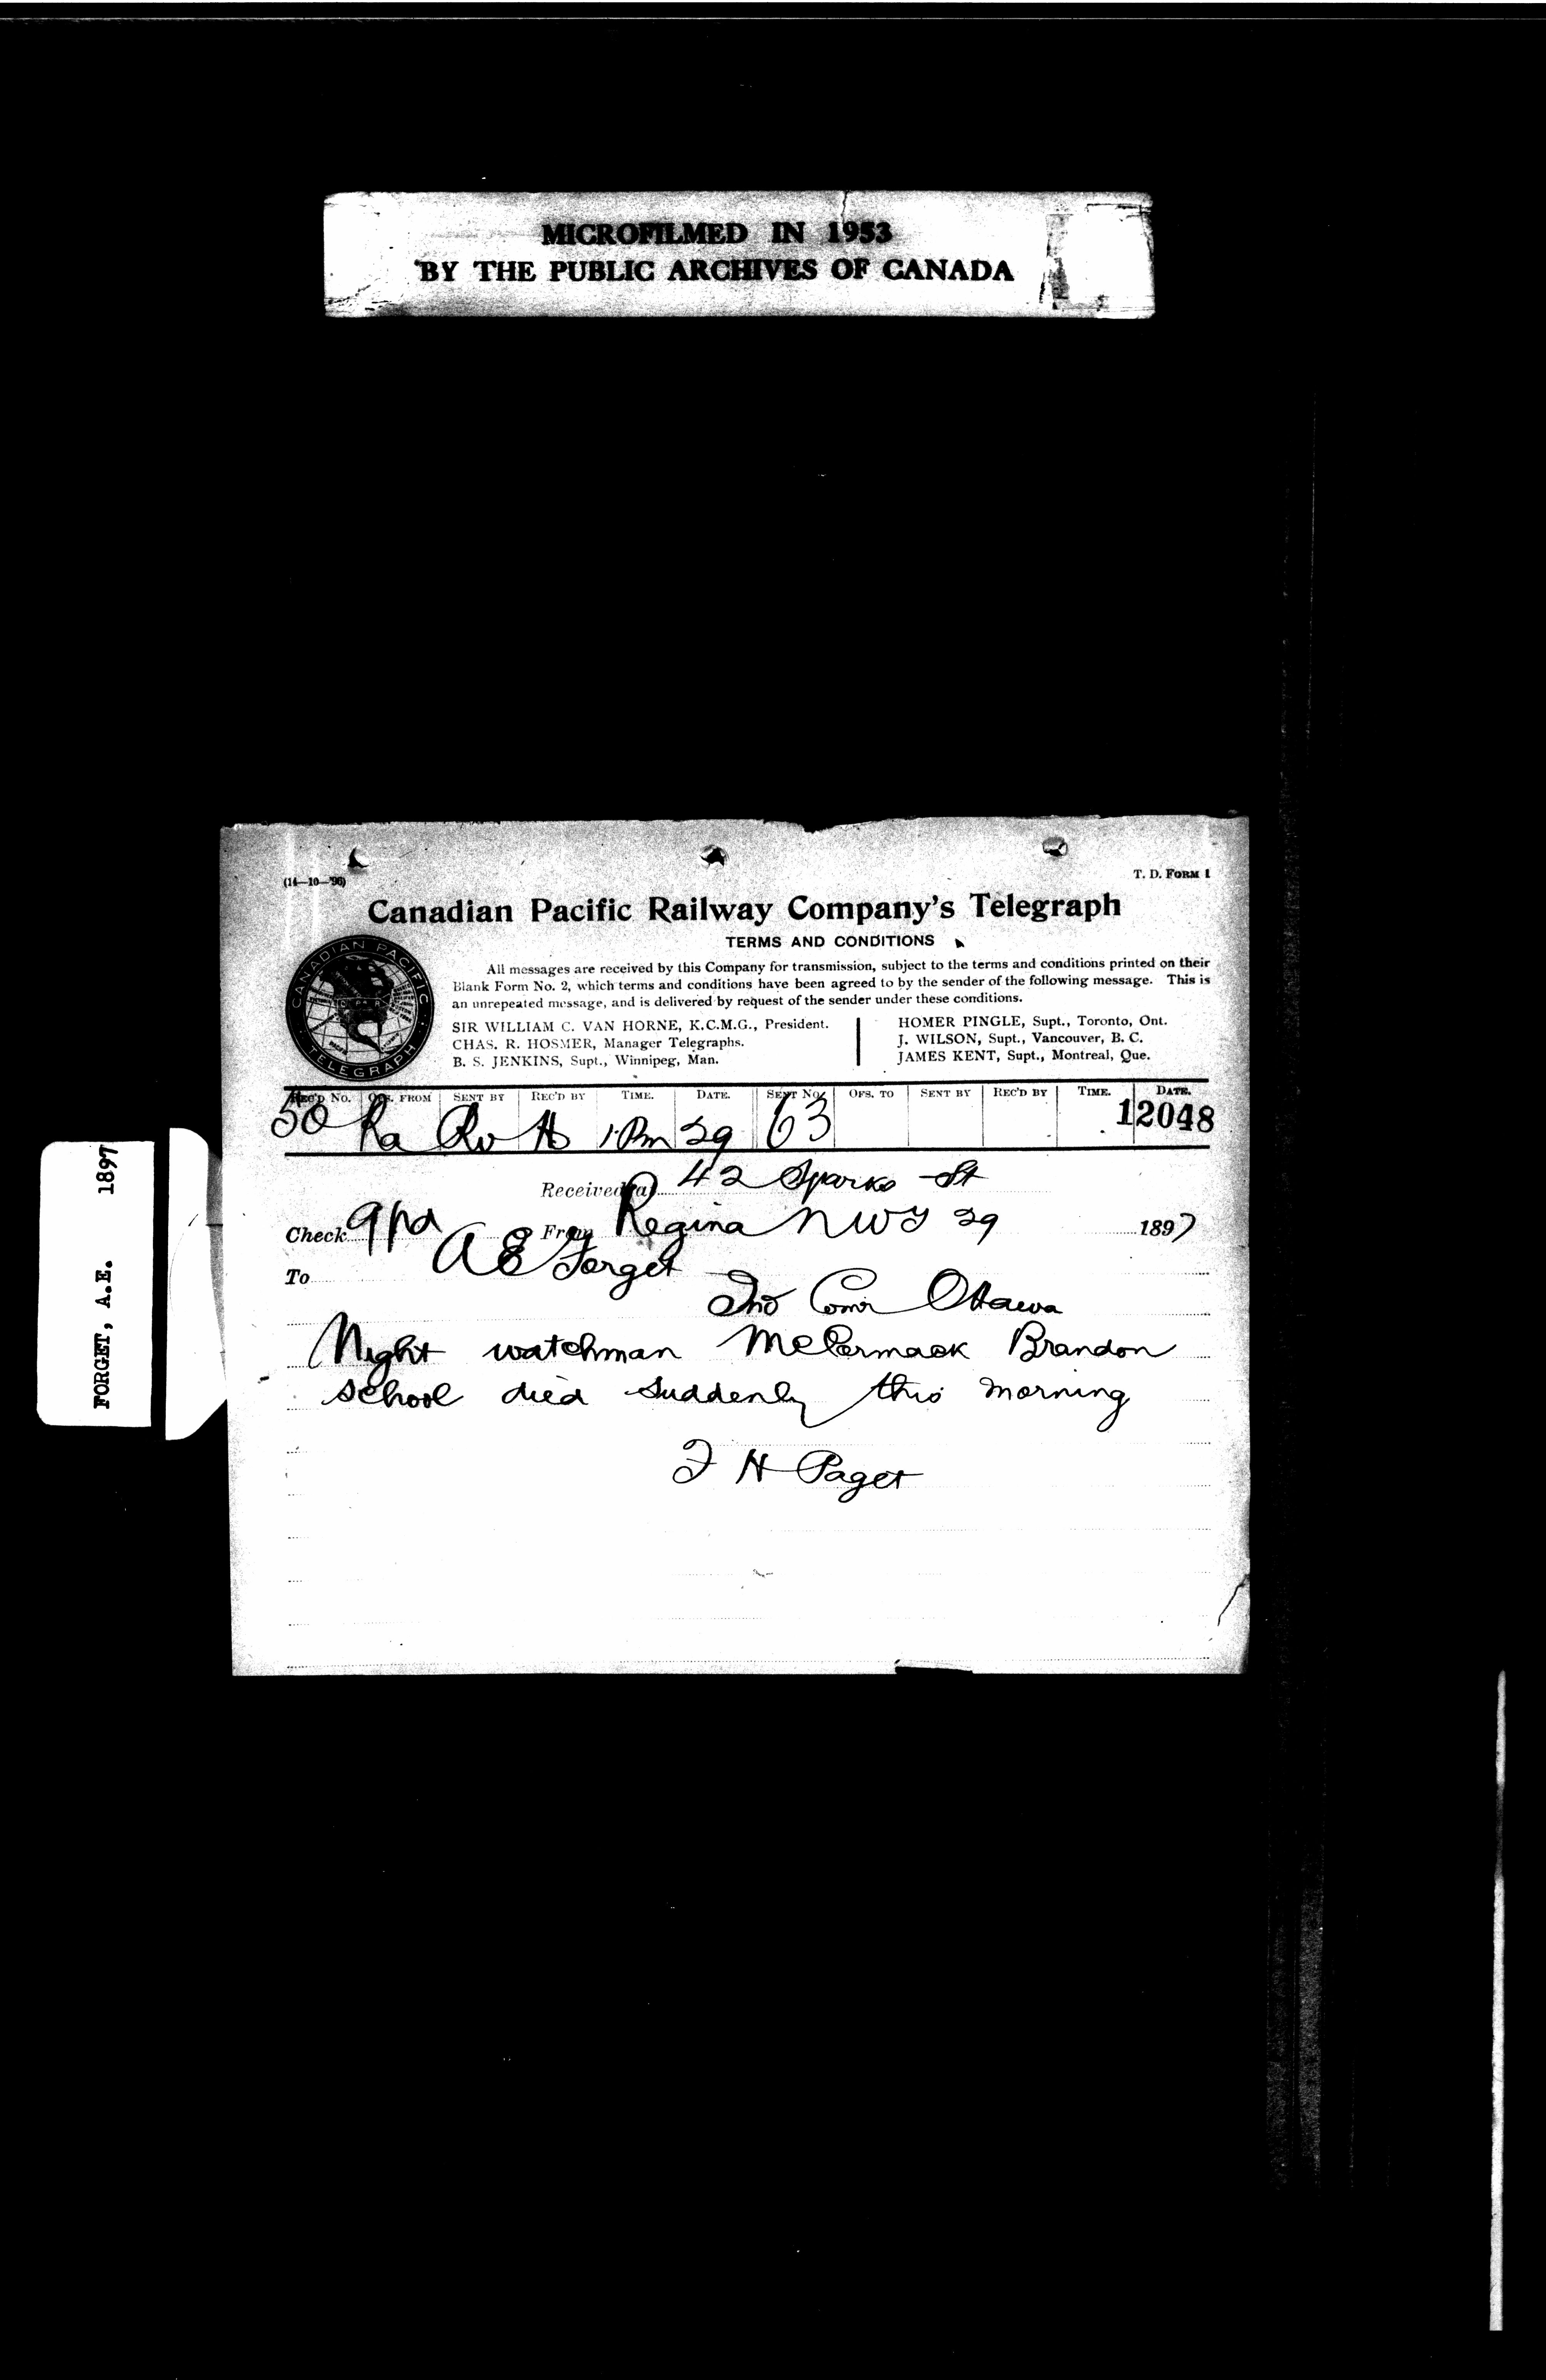 MICROFILMED IN 1953
BY THE PUBLIC ARCHIVES OF CANADA
FORGET, A.E. 1897
(14—10—'96)
T. D. FORM 1
Canadian Pacific Railway Company's Telegraph
TERMS AND CONDITIONS
All messages are received by this Company for transmission, subject to the terms and conditions printed on their
Blank Form No. 2, which terms and conditions have been agreed to by the sender of the following message. This is
an unrepeated message, and is delivered by request of the sender under these conditions.
CANADIAN PACIFIC
TELEGRAPH
SIR WILLIAM C. VAN HORNE, K.C.M.G., President.
CHAS. R. HOSMER, Manager Telegraphs.
B. S. JENKINS, Supt., Winnipeg, Man.
HOMER PINGLE, Supt., Toronto, Ont.
J. WILSON, Supt., Vancouver, B. C.
JAMES KENT, Supt., Montreal, Que.
REC'D No. OFS. FROM SENT BY REC'D BY TIME. DATE. SENT No. OFS. TO SENT BY REC'D BY TIME. DATE.
50 Ra H 1 Pm 29 63 12048
Received at 42 Sparks St
Check 9 pd From Regina NWT 29 1897
To A E Forget
Ind Comr Ottawa
Night watchman McCormack Brandon
school died suddenly this morning
F H Paget